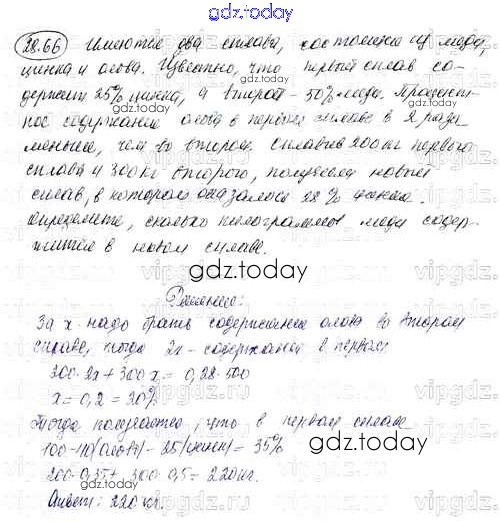 gdz.today
28.66 Имеются два сплава, состоящие из меди,
цинка и олова. Известно, что первый сплав со-
держит 25% цинка, а второй - 50% меди. Процент-
ное содержание олова в первом сплаве в 2 раза
меньше, чем во втором. Сплавив 200 кг первого
сплава и 300 кг второго, получили новый
сплав, в котором оказалось 28% олова.
Определите, сколько килограммов меди содер-
жится в новом сплаве.
gdz.today
Решение:
За x надо брать содержание олова во втором
сплаве, тогда 2x - содержание в первом
200·2x + 300x = 0,28·500
x = 0,2 = 20%
Тогда получается, что в первом сплаве
100-40(олова) - 25(цинка) = 35%
200·0,35 + 300·0,5 = 220 кг.
Ответ: 220 кг.
gdz.today
gdz.today